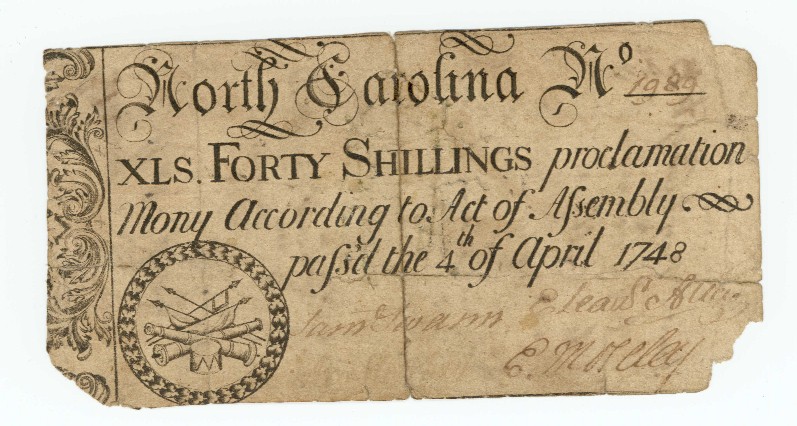 North Carolina No 1989
XLS. FORTY SHILLINGS proclamation
Mony According to Act of Aſsembly.
paſs'd the 4th of April 1748
Sam Swann Eleazr Allen
E. Moseley